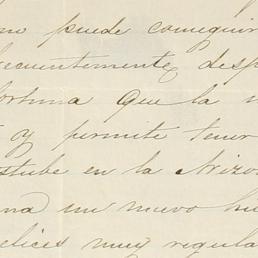 no puede conseguir
frecuentemente, desp
fortuna que la
y permite tener
estube en la Arizo
una un nuevo
felices muy regula